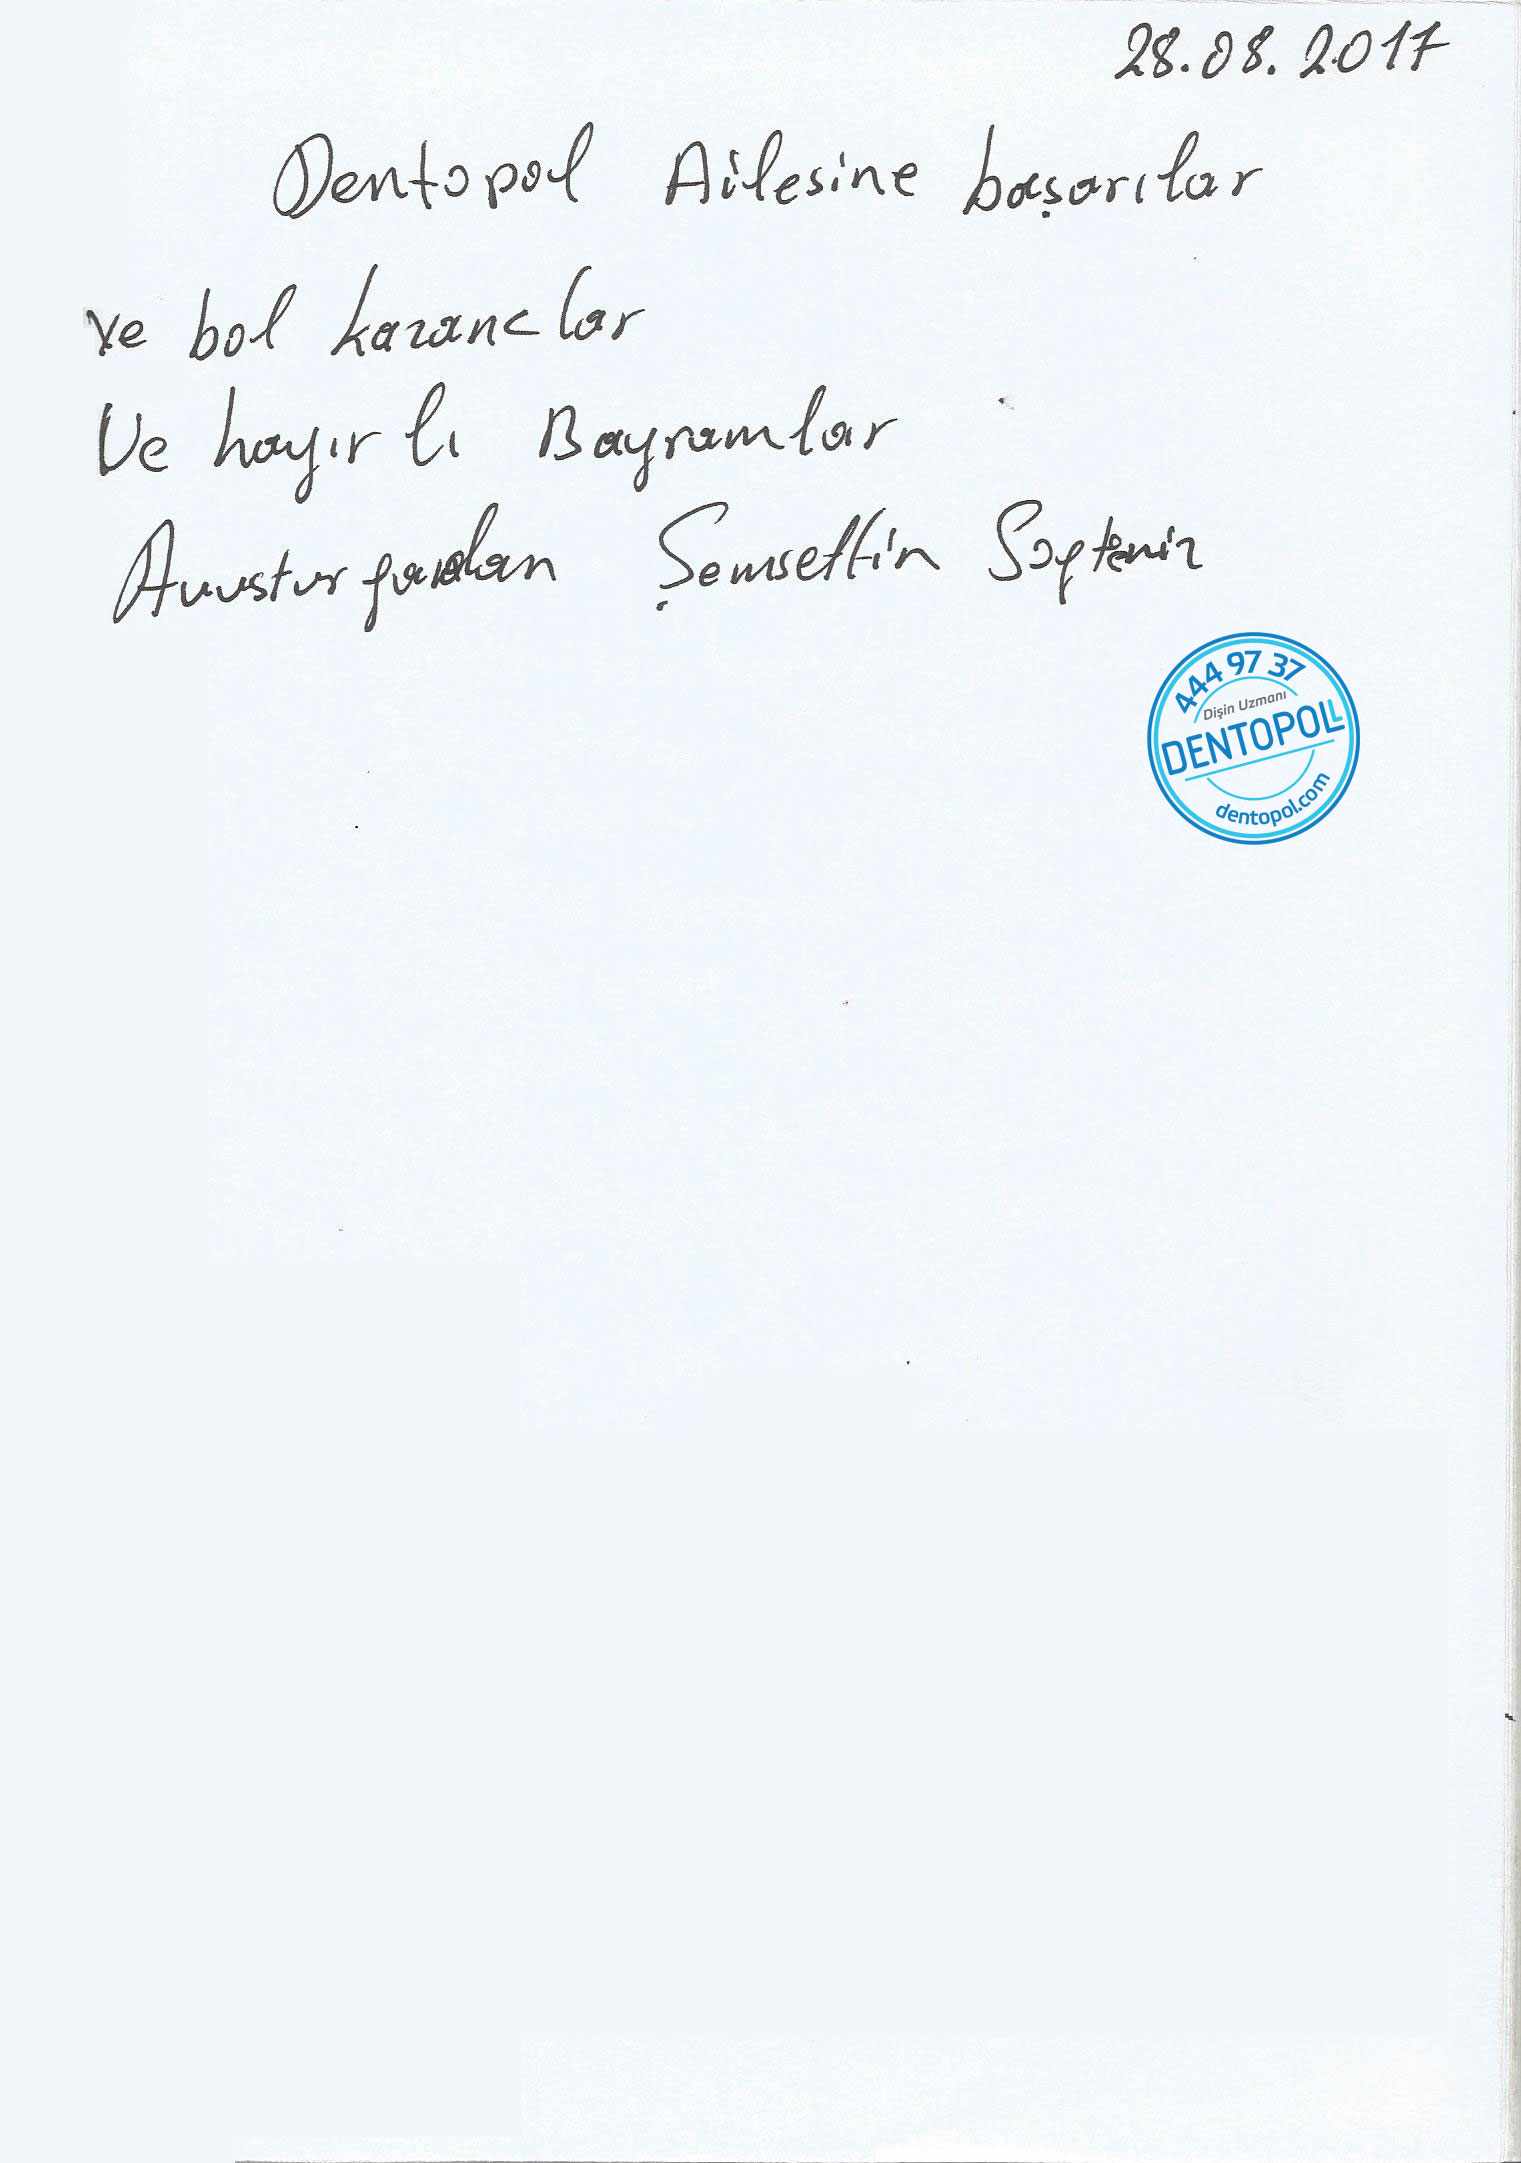 28.08.2017
Dentopol Ailesine başarılar
ve bol kazanclar
Ve hayırlı Bayramlar
Avusturyadan Şemsettin Soytemiz
444 97 37
Dişin Uzmanı
DENTOPOLL
dentopol.com